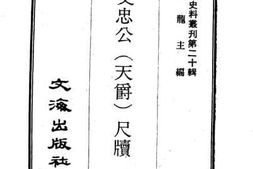 史料叢刊第二十輯
龍主編
文忠公（天爵）尺牘
文海出版社